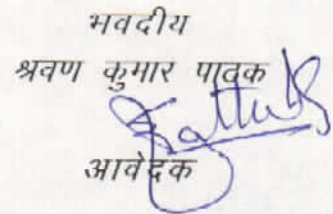 भवदीय
श्रवण कुमार पाठक
आवेदक